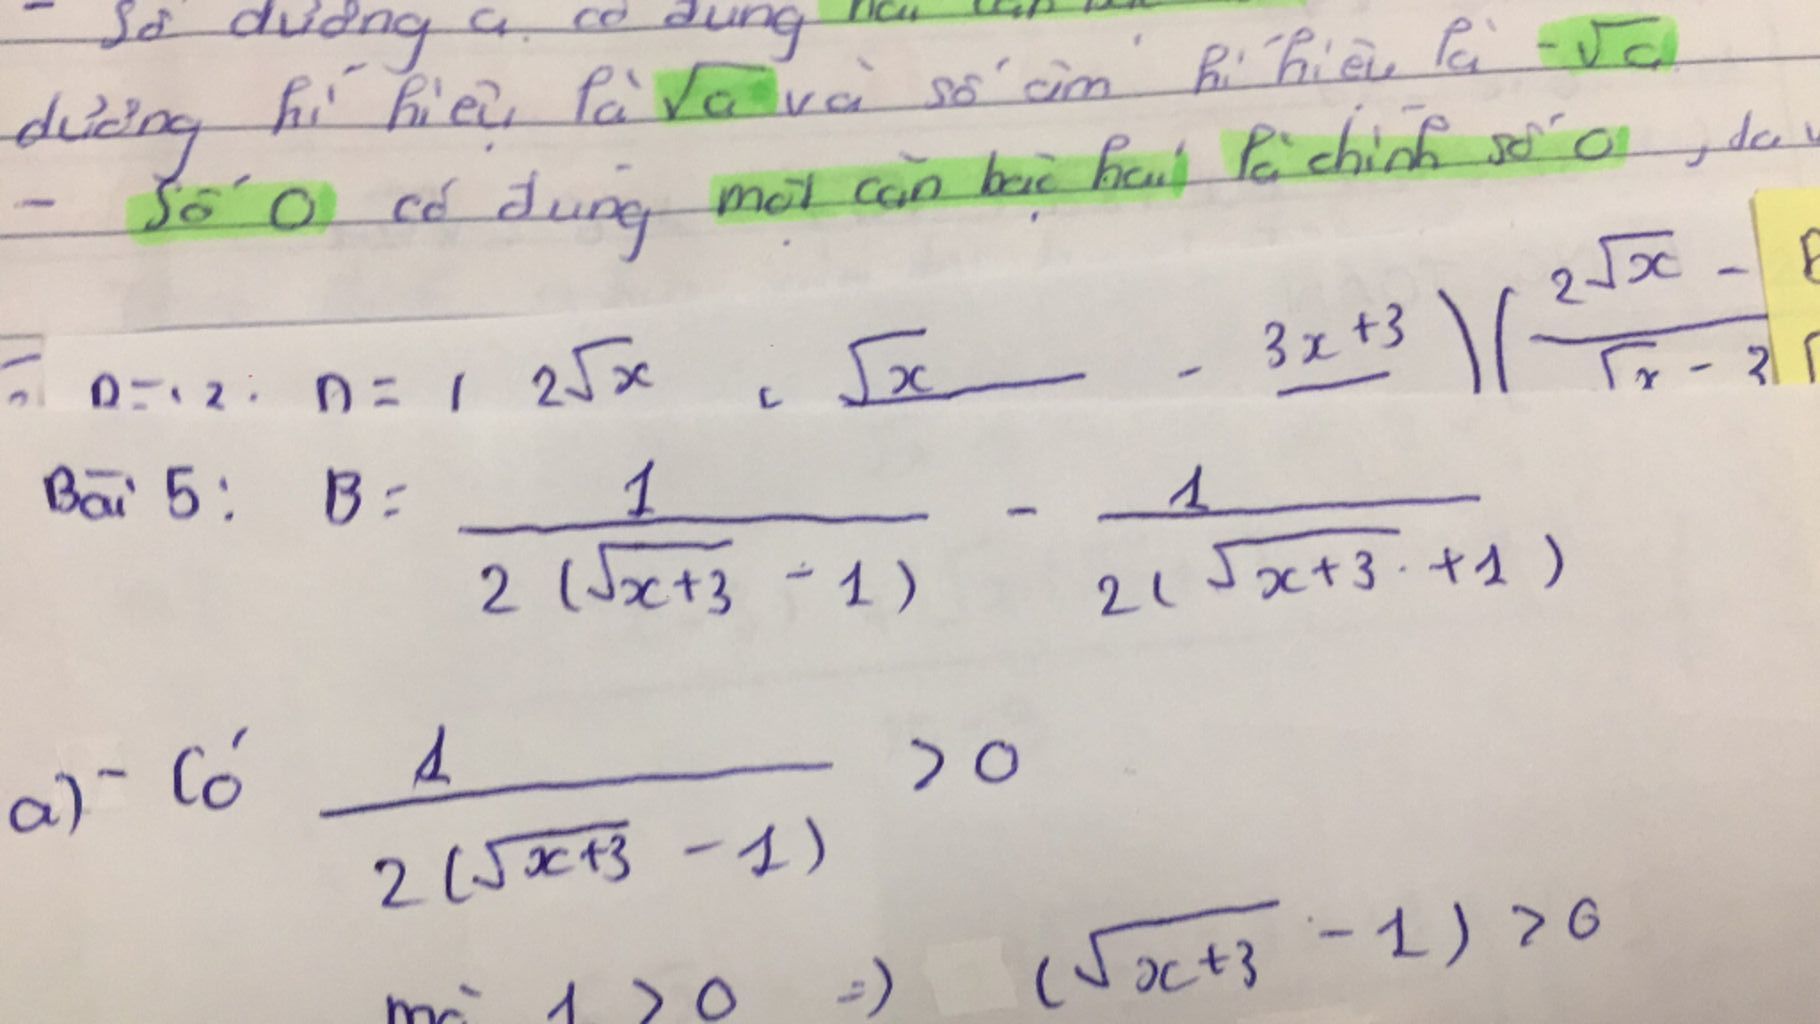 - Số dương a có đúng
dương kí hiệu là √a và số âm kí hiệu là -√a
- Số 0 có đúng một căn bậc hai là chính số 0, ta
2√x √x - 3x+3 ) ( 2√x -
√x -
Bài 5: B = 1 / 2(√x+3 - 1) - 1 / 2(√x+3 + 1)
a) - Có 1 / 2(√x+3 - 1) > 0
mà 1 > 0 => (√x+3 - 1) > 0